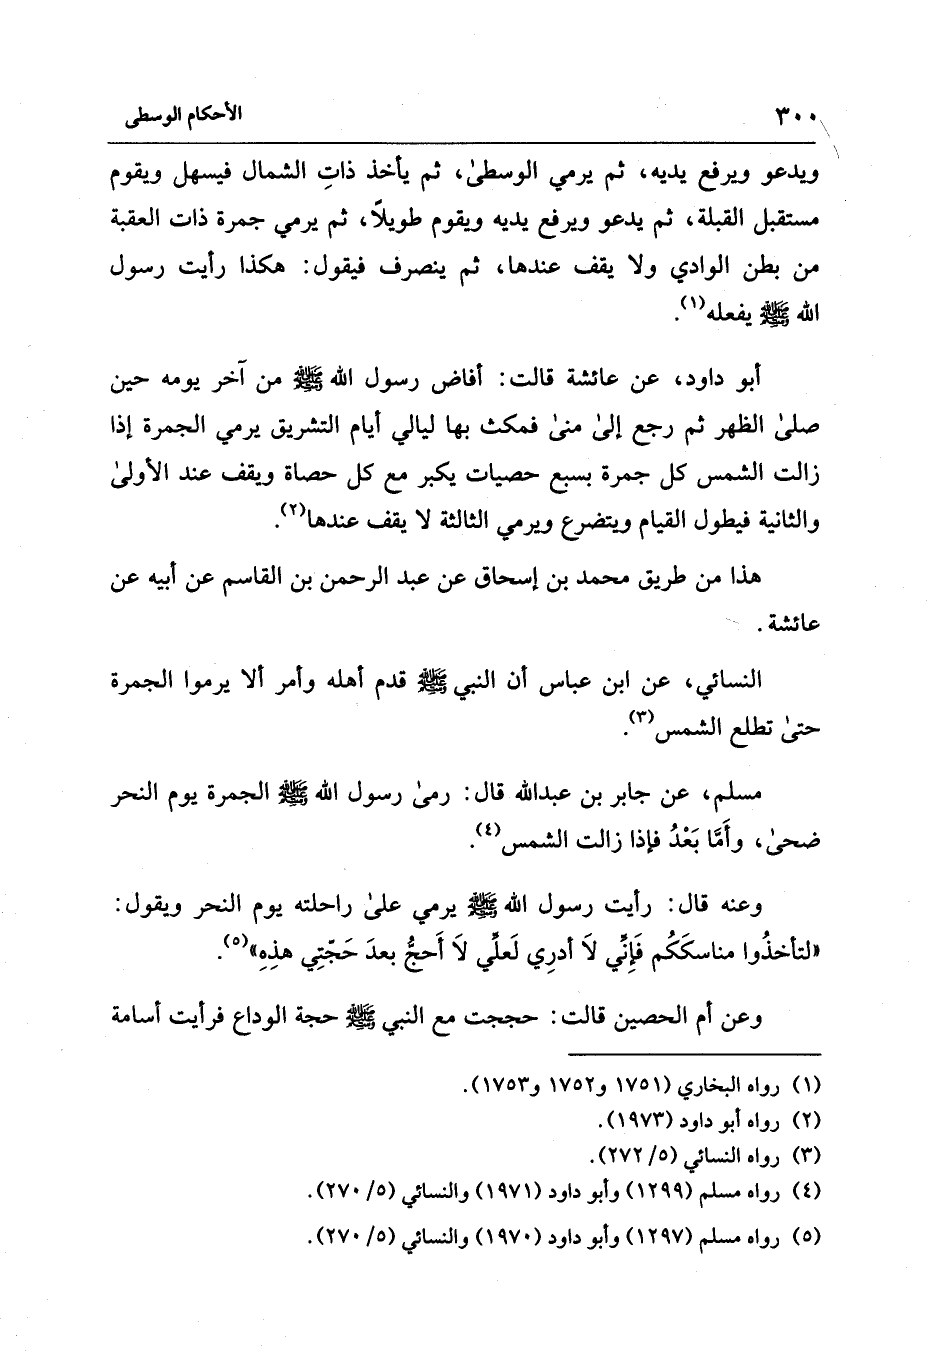 ٣٠٠ الأحكام الوسطى
ويدعو ويرفع يديه، ثم يرمي الوسطىٰ، ثم يأخذ ذاتِ الشمال فيسهل ويقوم
مستقبل القبلة، ثم يدعو ويرفع يديه ويقوم طويلاً، ثم يرمي جمرة ذات العقبة
من بطن الوادي ولا يقف عندها، ثم ينصرف فيقول: هكذا رأيت رسول
الله ﷺ يفعله(١).
أبو داود، عن عائشة قالت: أفاض رسول الله ﷺ من آخر يومه حين
صلىٰ الظهر ثم رجع إلىٰ منىٰ فمكث بها ليالي أيام التشريق يرمي الجمرة إذا
زالت الشمس كل جمرة بسبع حصيات يكبر مع كل حصاة ويقف عند الأولىٰ
والثانية فيطول القيام ويتضرع ويرمي الثالثة لا يقف عندها(٢).
هذا من طريق محمد بن إسحاق عن عبد الرحمن بن القاسم عن أبيه عن
عائشة.
النسائي، عن ابن عباس أن النبي ﷺ قدم أهله وأمر ألا يرموا الجمرة
حتىٰ تطلع الشمس(٣).
مسلم، عن جابر بن عبدالله قال: رمىٰ رسول الله ﷺ الجمرة يوم النحر
ضحىٰ، وأَمَّا بَعْدُ فإذا زالت الشمس(٤).
وعنه قال: رأيت رسول الله ﷺ يرمي علىٰ راحلته يوم النحر ويقول:
«لتأخذُوا مناسكَكُم فَإِنِّي لاَ أدرِي لَعلِّي لاَ أَحجُّ بعدَ حَجّتِي هذِهِ»(٥).
وعن أم الحصين قالت: حججت مع النبي ﷺ حجة الوداع فرأيت أسامة
(١) رواه البخاري (١٧٥١ و١٧٥٢ و١٧٥٣).
(٢) رواه أبو داود (١٩٧٣).
(٣) رواه النسائي (٥/ ٢٧٢).
(٤) رواه مسلم (١٢٩٩) وأبو داود (١٩٧١) والنسائي (٥/ ٢٧٠).
(٥) رواه مسلم (١٢٩٧) وأبو داود (١٩٧٠) والنسائي (٥/ ٢٧٠).